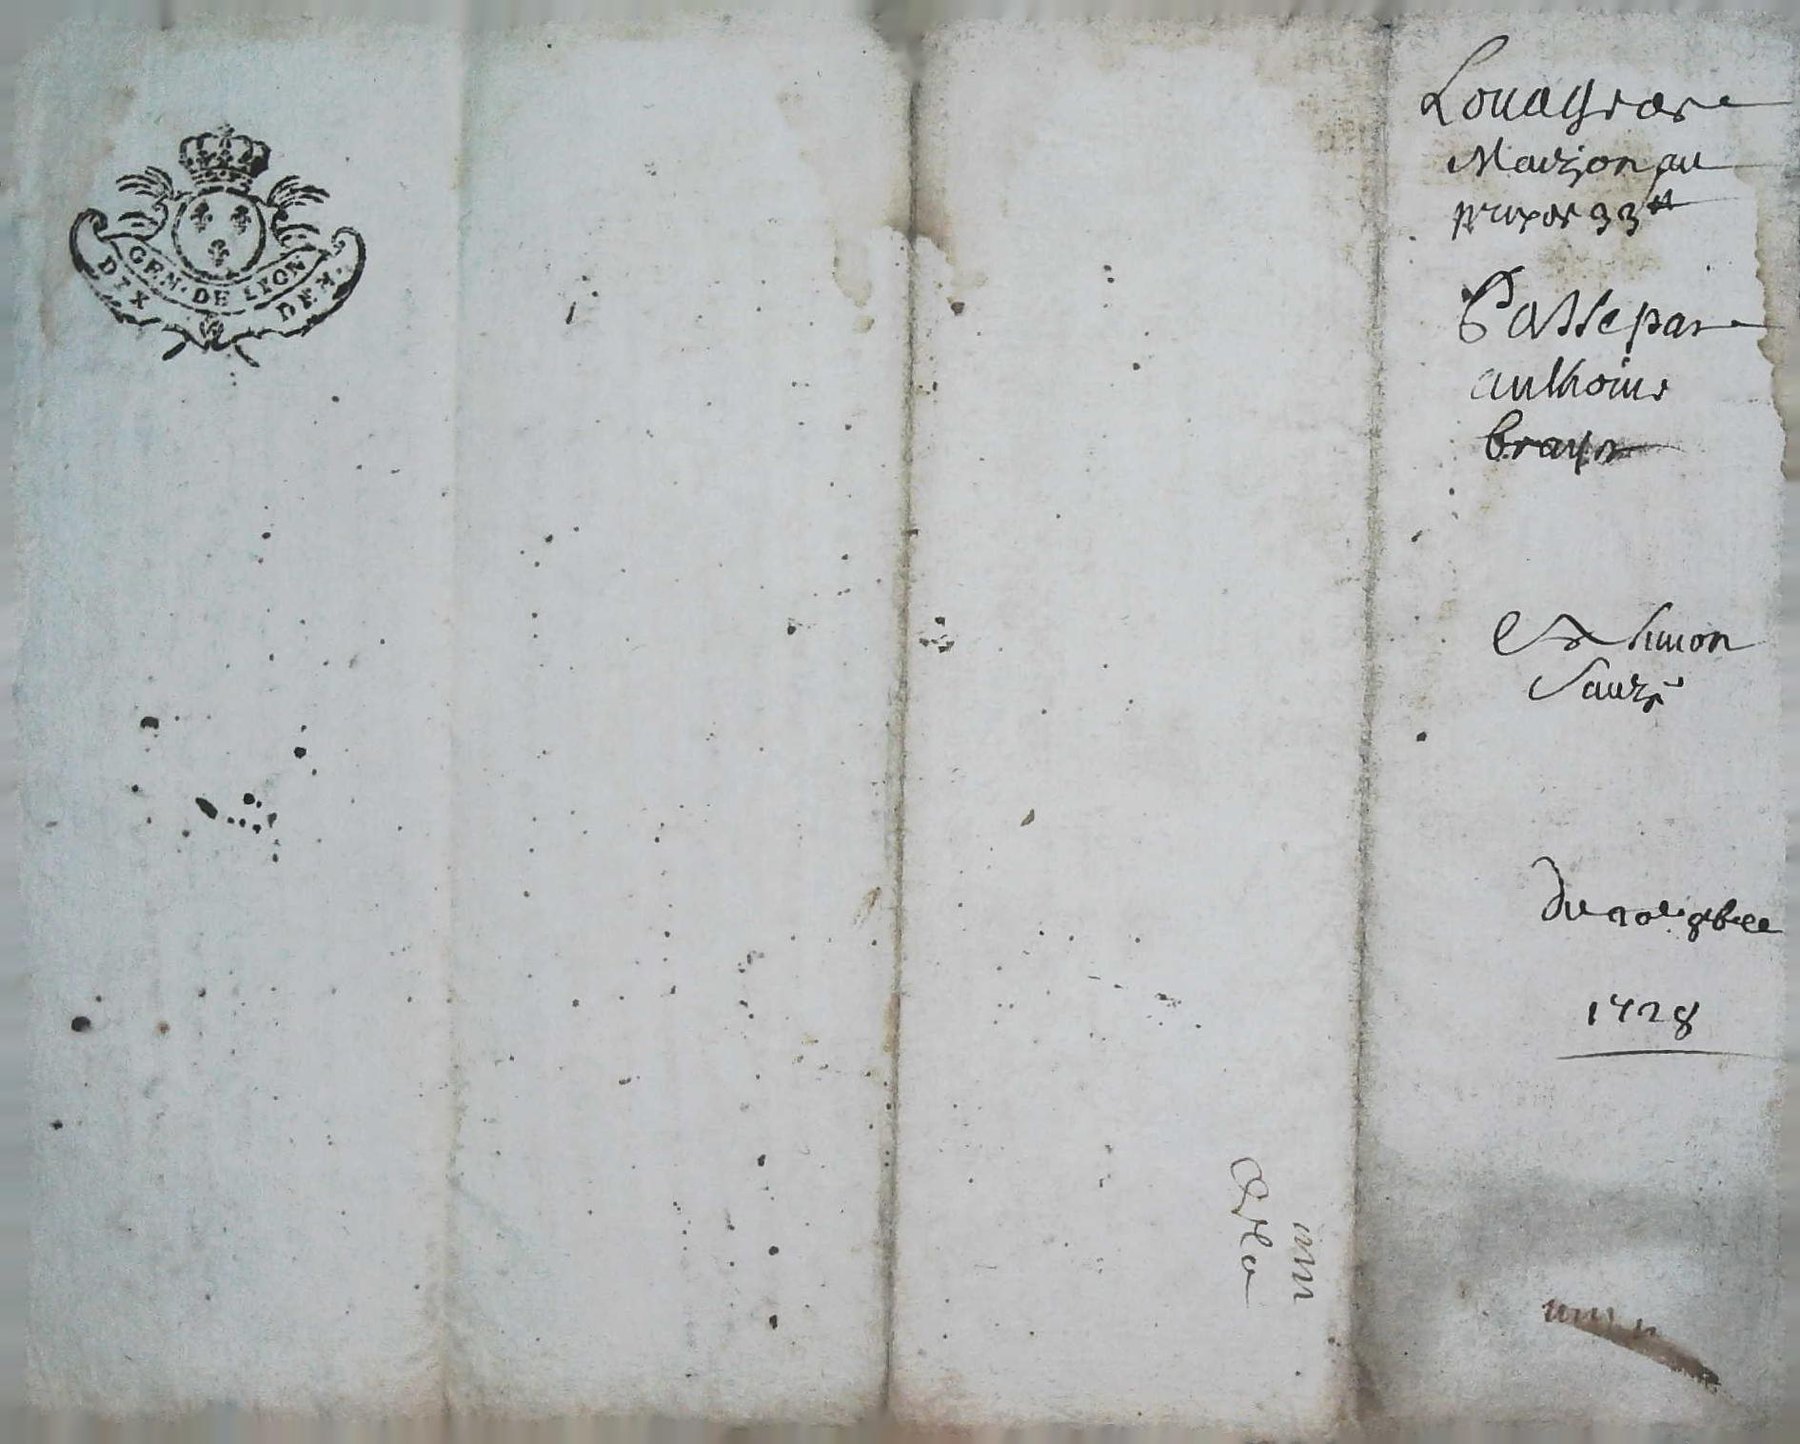 GEN. DE LYON
DIX DEN.
Louage de
Maizon au
prix de 33 tt
Passe par
anthoine
brayr
Et Simon
Sauze
du 20e 8bre
1728